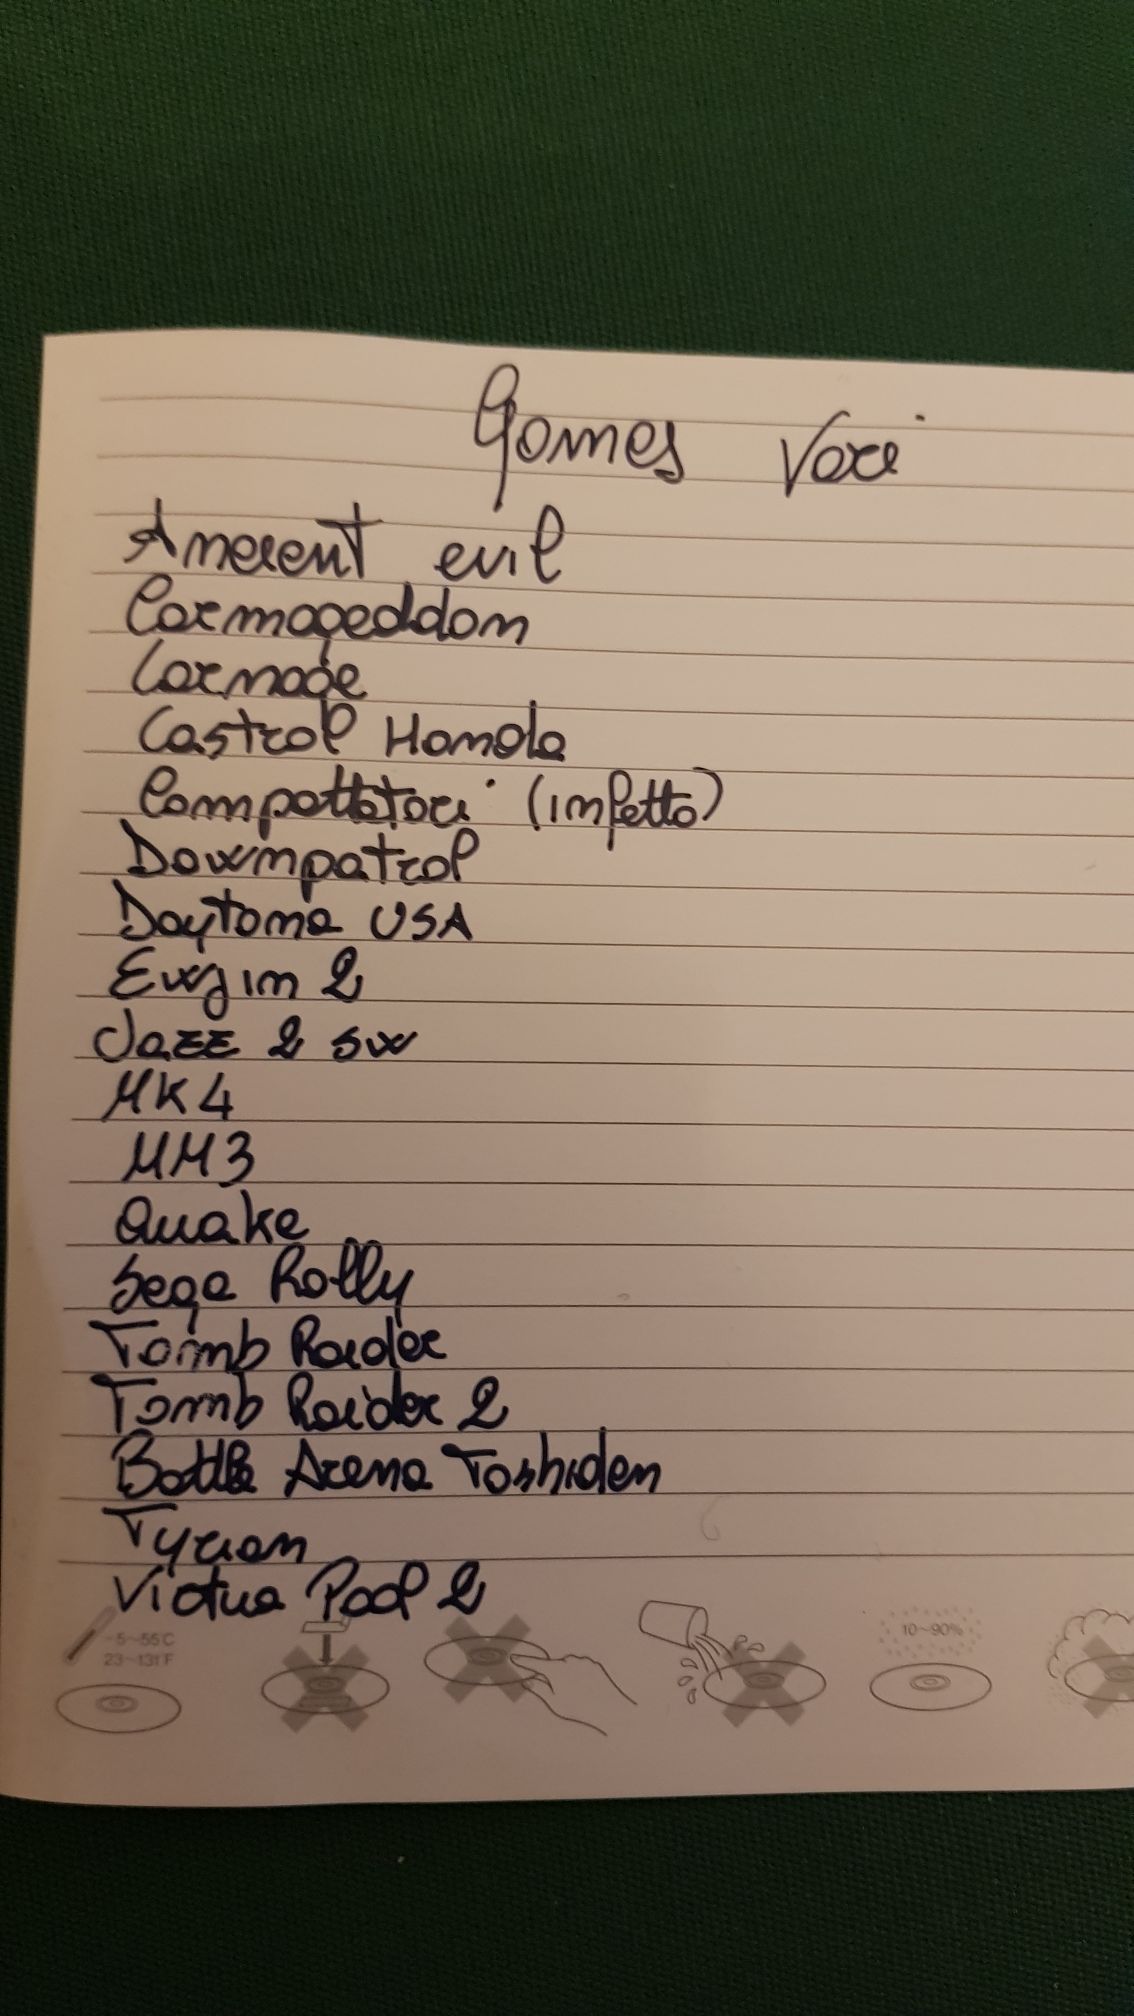 Games Vari
Ancient evil
Carmageddon
Carnage
Castrol Honda
Compattatori (infetto)
Downpatrol
Daytona USA
Ewjim 2
Jazz 2 sw
MK4
MM3
Quake
Sega Rally
Tomb Raider
Tomb Raider 2
Battle Arena Toshiden
Tyrian
Virtua Pool 2
-5~55C
23~131F
10~90%